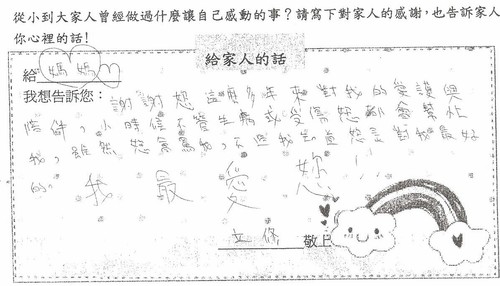 從小到大家人曾經做過什麼讓自己感動的事？請寫下對家人的感謝，也告訴家人
你心裡的話！
給家人的話
給 媽媽
我想告訴您：謝謝您這麼多年來對我的愛護與
陪伴，小時候不管生病或受傷您都會幫忙
我，雖然您會罵我，不過我知道您是對我最好
的。我最愛您！！
文修 敬上